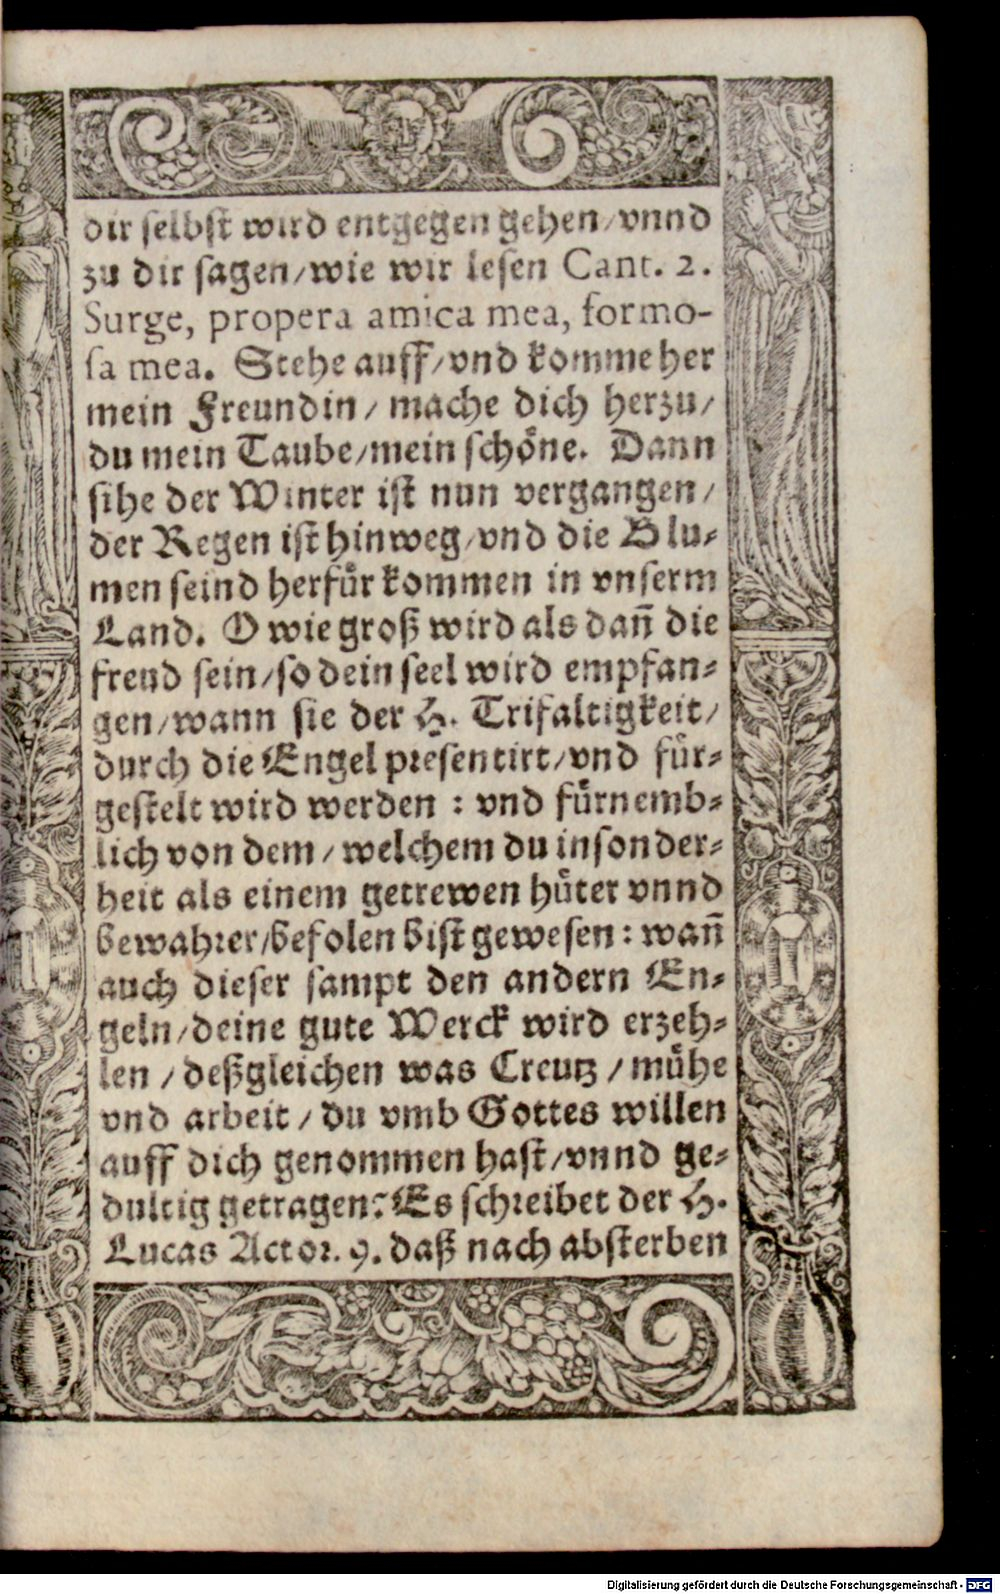 dir selbst wird entgegen gehen/vnnd
zu dir sagen/wie wir lesen Cant. 2.
Surge, propera amica mea, formo-
sa mea. Stehe auff/vnd komme her
mein Freundin/mache dich herzu/
du mein Taube/mein schöne. Dann
sihe der Winter ist nun vergangen/
der Regen ist hinweg/vnd die Blu-
men seind herfür kommen in vnserm
Land. O wie groß wird als dañ die
freud sein/so dein seel wird empfan-
gen/wann sie der H. Trifaltigkeit/
durch die Engel presentirt/vnd für-
gestelt wird werden : vnd fürnemb-
lich von dem/welchem du insonder-
heit als einem getrewen hüter vnnd
bewahrer/befolen bist gewesen: wañ
auch dieser sampt den andern En-
geln/deine gute Werck wird erzeh-
len/deßgleichen was Creutz/mühe
vnd arbeit/du vmb Gottes willen
auff dich genommen hast/vnnd ge-
dultig getragen? Es schreibet der H.
Lucas Actor. 9. daß nach absterben
Digitalisierung gefördert durch die Deutsche Forschungsgemeinschaft - DFG